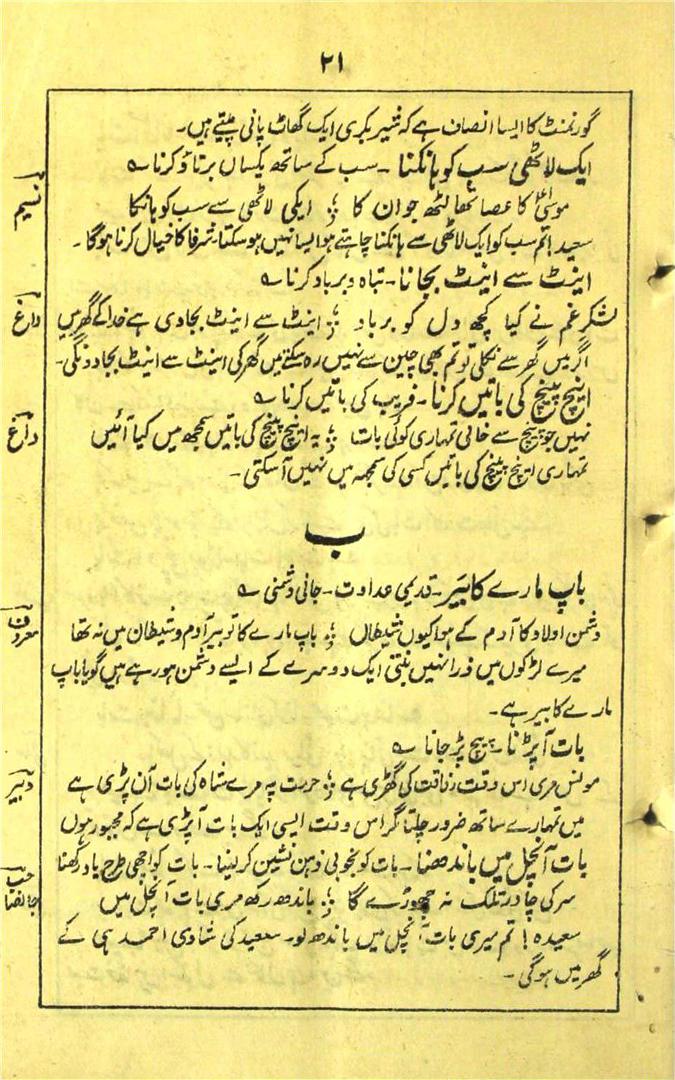 ۲۱
گورنمنٹ کا ایسا انصاف ہے کہ شیر بکری ایک گھاٹ پانی پیتے ہیں۔
ایک لاٹھی سب کو ہانکنا۔ سب کے ساتھ یکساں برتاؤ کرنا ؎
نسیم
موسیٰؑ کا عصا تھا لٹھ جوان کا ؛ ایکی لاٹھی سے سب کو ہانکا
سعید! تم سب کو ایک لاٹھی سے ہانکنا چاہتے ہو ایسا نہیں ہو سکتا، شرفا کا خیال کرنا ہوگا۔
اینٹ سے اینٹ بجانا۔ تباہ و برباد کرنا ؎
داغ
لشکرِ غم نے کیا کچھ دل کو برباد ؛ اینٹ سے اینٹ بجا دی ہے خدا کے گھر میں
اگر میں گھر سے نکلی تو تم بھی چین سے نہیں رہ سکتے میں گھر کی اینٹ سے اینٹ بجا دونگی۔
اینچ پینچ کی باتیں کرنا۔ فریب کی باتیں کرنا ؎
داغ
نہیں جو پیچ سے خالی تمہاری کوئی بات ؛ یہ اینچ پینچ کی باتیں سمجھ میں کیا آئیں
تمہاری اینچ پینچ کی باتیں کسی کی سمجھ میں نہیں آسکتی۔
ب
باپ مارے کا بَیر۔ قدیمی عداوت۔ جانی دشمنی ؎
معروف
دشمن اولادِ کا آدم کے ہوا کیوں شیطاں ؛ باپ مارے کا تو بیر آدم و شیطان میں نہ تھا
میرے لڑکوں میں ذرا نہیں بنتی ایک دوسرے کے ایسے دشمن ہو رہے ہیں گویا باپ
مارے کا بیر ہے۔
بات آپڑنا۔ پیچ پڑجانا ؎
دبیر
مونس مری اس وقت رفاقت کی گھڑی ہے ؛ حرمت پہ مرے شاہ کی بات آن پڑی ہے
میں تمہارے ساتھ ضرور چلتا مگر اس وقت ایسی ایک بات آپڑی ہے کہ مجبور ہوں
بات آنچل میں باندھنا۔ بات کو بخوبی ذہن نشین کر لینا۔ بات کو اچھی طرح یاد رکھنا
جانصاحب
سر کی چادر تلک نہ چھوڑے گا ؛ باندھ رکھ مری بات آنچل میں
سعیدہ! تم میری بات آنچل میں باندھ لو۔ سعید کی شادی احمد ہی کے
گھر میں ہوگی۔